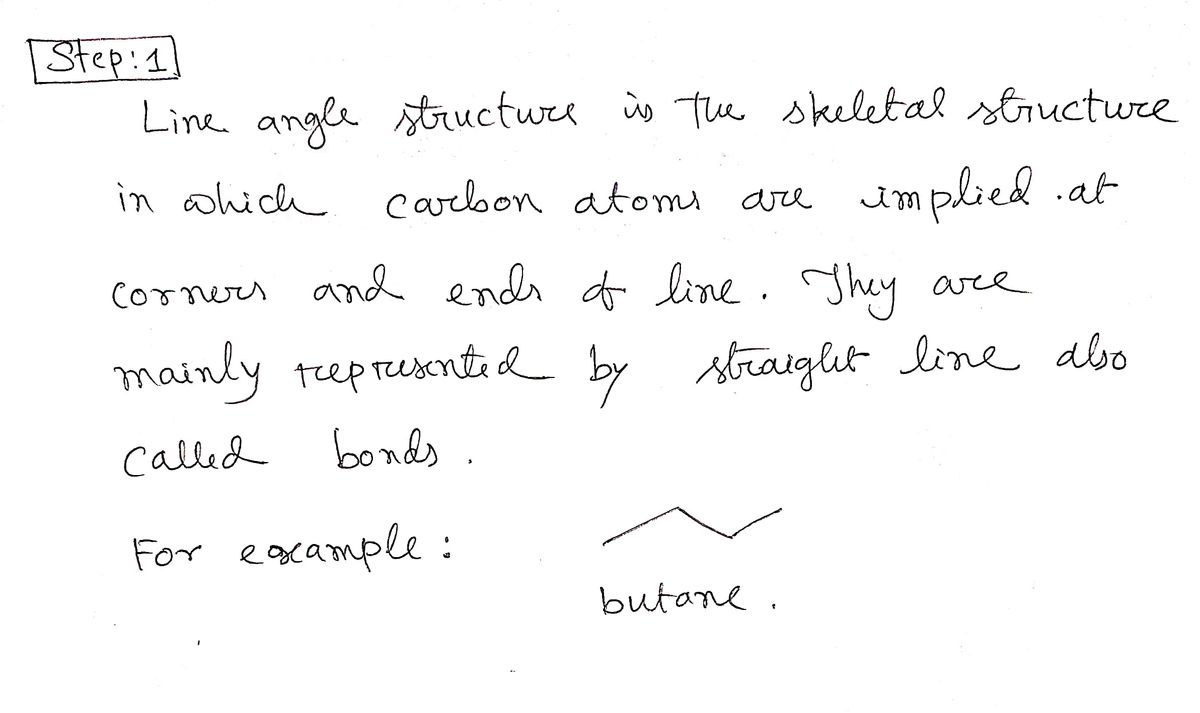 Step:1
Line angle structure is the skeletal structure
in which carbon atoms are implied .at
corners and ends of line. They are
mainly represented by straight line also
called bonds.
For example:
butane.